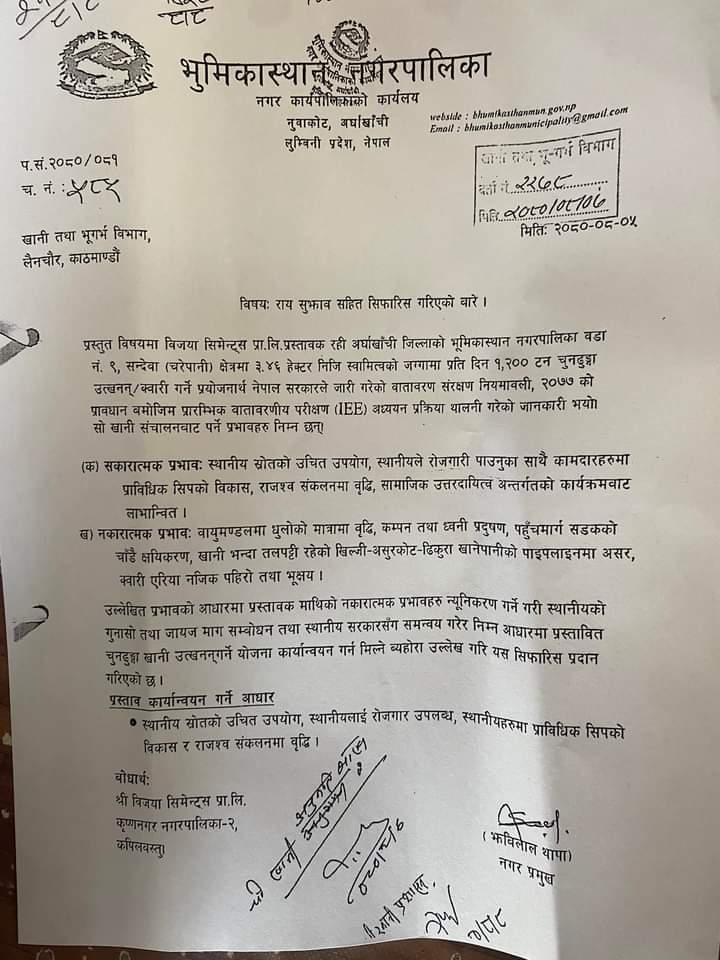 भुमिकास्थान नगरपालिका
नगर कार्यपालिकाको कार्यलय
नुवाकोट, अर्घाखाँची
लुम्विनी प्रदेश, नेपाल
webside : bhumikasthanmun.gov.np
Email : bhumikasthanmunicipality@gmail.com
प.सं.२०८०/०८१
च. नं. : ५८५
खानी तथा भू-गर्भ विभाग
दर्ता नं. २२७८
मिति २०८०/०८/०६
मितिः २०८०-०८-०५
खानी तथा भूगर्भ विभाग,
लैनचौर, काठमाण्डौं
विषयः राय सुझाव सहित सिफारिस गरिएको वारे ।
प्रस्तुत विषयमा विजया सिमेन्ट्स प्रा.लि.प्रस्तावक रही अर्घाखाँची जिल्लाको भूमिकास्थान नगरपालिका वडा
नं. ९, सन्देवा (चरेपानी) क्षेत्रमा ३.४६ हेक्टर निजि स्वामित्वको जग्गामा प्रति दिन १,२०० टन चुनढुङ्गा
उत्खनन्/क्वारी गर्ने प्रयोजनार्थ नेपाल सरकारले जारी गरेको वातावरण संरक्षण नियमावली, २०७७ को
प्रावधान वमोजिम प्रारम्भिक वातावरणीय परीक्षण (IEE) अध्ययन प्रक्रिया थालनी गरेको जानकारी भयो।
सो खानी संचालनवाट पर्ने प्रभावहरु निम्न छन्।
(क) सकारात्मक प्रभावः स्थानीय स्रोतको उचित उपयोग, स्थानीयले रोजगारी पाउनुका साथै कामदारहरुमा
प्राविधिक सिपको विकास, राजश्व संकलनमा वृद्धि, सामाजिक उत्तरदायित्व अन्तर्गतको कार्यक्रमवाट
लाभान्वित ।
ख) नकारात्मक प्रभावः वायुमण्डलमा धुलोको मात्रामा वृद्धि, कम्पन तथा ध्वनी प्रदुषण, पहुँचमार्ग सडकको
चाँडै क्षयिकरण, खानी भन्दा तलपट्टी रहेको खिल्जी-असुरकोट-ढिकुरा खानेपानीको पाइपलाइनमा असर,
क्वारी एरिया नजिक पहिरो तथा भूक्षय ।
उल्लेखित प्रभावको आधारमा प्रस्तावक माथिको नकारात्मक प्रभावहरु न्यूनिकरण गर्ने गरी स्थानीयको
गुनासो तथा जायज माग सम्वोधन तथा स्थानीय सरकारसंग समन्वय गरेर निम्न आधारमा प्रस्तावित
चुनढुङ्गा खानी उत्खनन्गर्ने योजना कार्यान्वयन गर्न मिल्ने व्यहोरा उल्लेख गरि यस सिफारिस प्रदान
गरिएको छ ।
प्रस्ताव कार्यान्वयन गर्ने आधार
• स्थानीय स्रोतको उचित उपयोग, स्थानीयलाई रोजगार उपलब्ध, स्थानीयहरुमा प्राविधिक सिपको
विकास र राजश्व संकलनमा वृद्धि ।
वोधार्थः
श्री विजया सिमेन्ट्स प्रा.लि.
कृष्णनगर नगरपालिका-२,
कपिलवस्तु।
(झविलाल थापा)
नगर प्रमुख